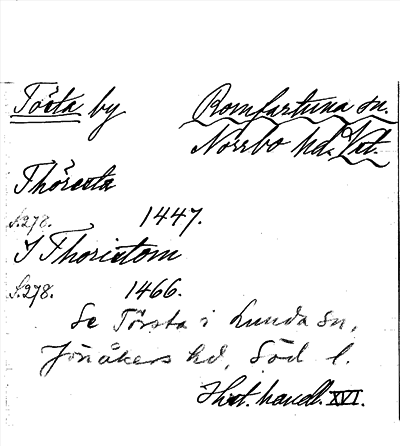 Tösta by Romfartuna sn.
Norrbo hd. Vst.
Thöresta
S. 278. 1447.
I Thoristom
S. 278. 1466.
Se Törsta i Lunda sn,
Jönåkers hd, Söd l.
Hist. handl. XVI.